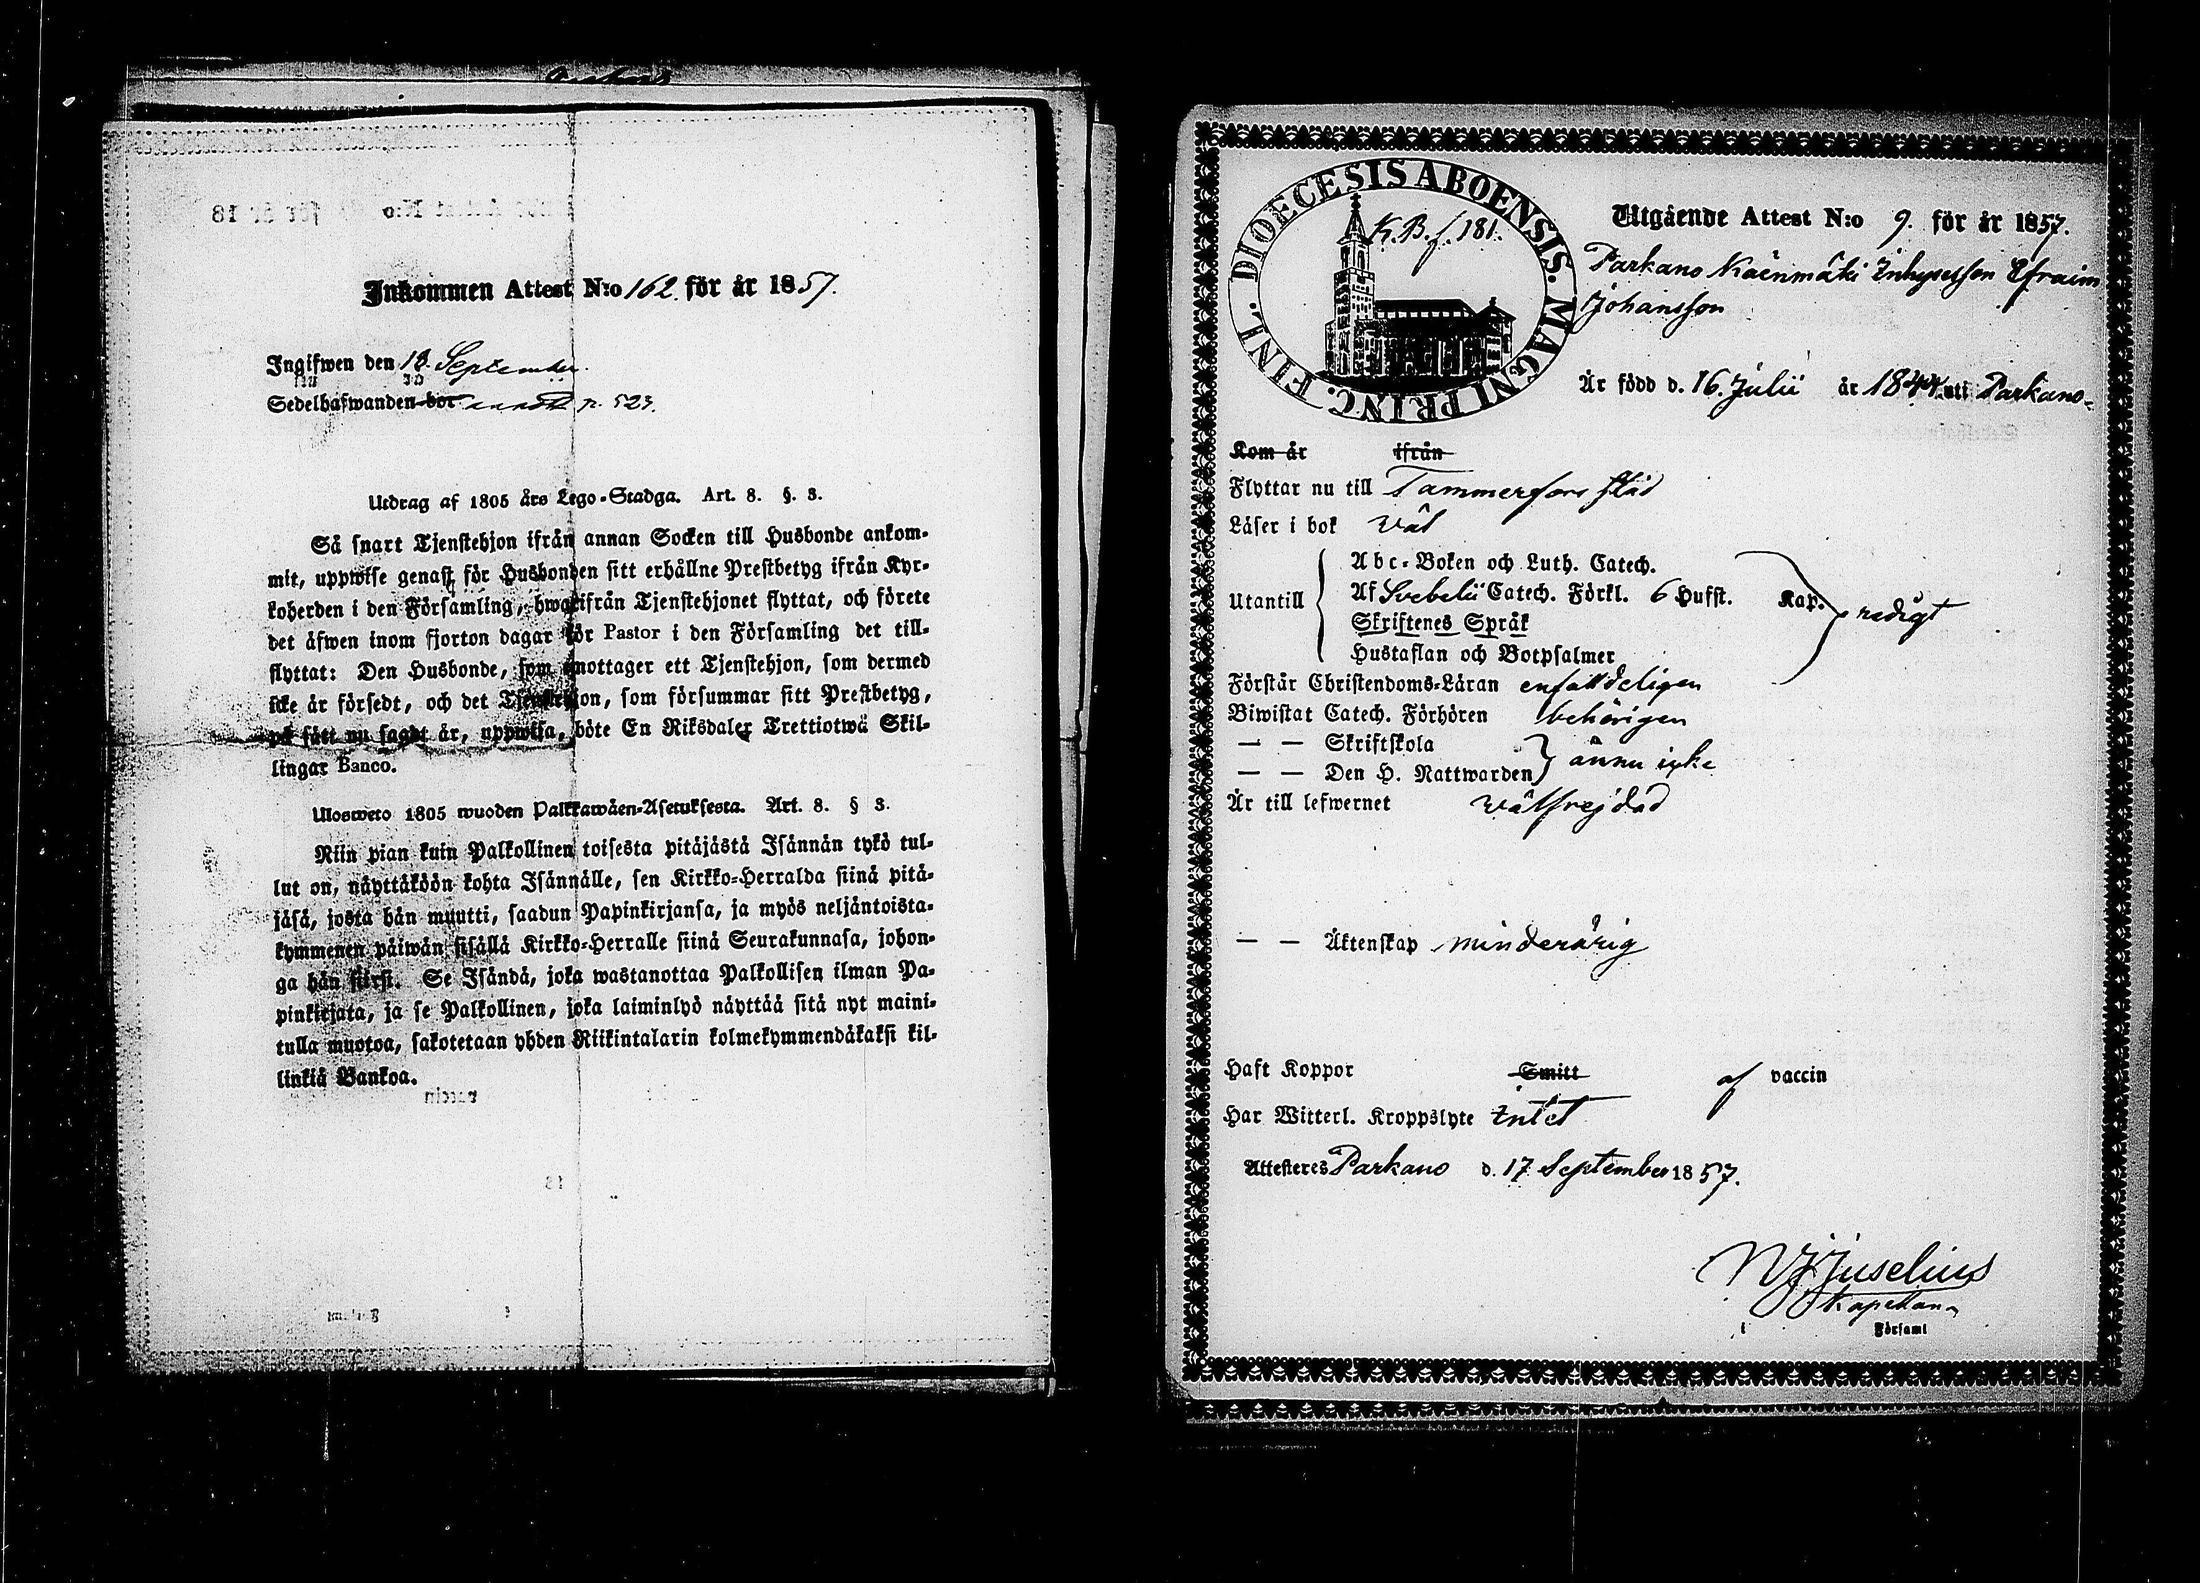 Inkommen Attest N:o 162. för år 1857.
Ingifwen den 18. September.
Sedelhafwanden bor p. 523.
Utdrag af 1805 års Lego-Stadga. Art. 8. §. 3.
Så snart Tjenstehjon ifrån annan Socken till Husbonde ankom-
mit, uppwise genast för Husbonden sitt erhållne Prestbetyg ifrån Kyr-
koherden i den Församling, hwarifrån Tjenstehjonet flyttat, och förete
det äfwen inom fjorton dagar för Pastor i den Församling det till-
flyttat: Den Husbonde, som emottager ett Tjenstehjon, som dermed
icke är försedt, och det Tjenstehjon, som försummar sitt Prestbetyg,
på sätt nu sagdt är, uppwisa, böte En Riksdaler Trettiotwå Skil-
lingar Banco.
Ulosweto 1805 wuoden Palkkawäen-Asetuksesta. Art. 8. § 3.
Niin pian kuin Palkollinen toisesta pitäjästä Isännän tykö tul-
lut on, näyttäköön kohta Isännälle, sen Kirkko-Herralda siinä pitä-
jäsä, josta hän muutti, saadun Papinkirjansa, ja myös neljäntoista-
kymmenen päiwän sisällä Kirkko-Herralle siinä Seurakunnasa, johon-
ga hän siirsi. Se Isändä, joka wastanottaa Palkollisen ilman Pa-
pinkirjata, ja se Palkollinen, joka laiminlyö näyttää sitä nyt maini-
tulla muotoa, sakotetaan yhden Riikintalarin kolmekymmendäkaksi kil-
linkiä Bankoa.
DIOECESIS ABOENSIS. MAGNI PRINC. FINL.
K.B. f. 181.
Utgående Attest N:o 9. för år 1857.
Parkano Käenmäki Inhysesson Efraim
Johansson
Är född d. 16. Julii år 1844 uti Parkano
Kom år ifrån
Flyttar nu till Tammerfors stad
Läser i bok väl
Utantill
Abc-Boken och Luth. Catech.
Af Svebelii Catech. Förkl. 6 Hufst. Kap. redigt
Skriftenes Språk
Hustaflan och Botpsalmer
Förstår Christendoms-Läran enfaldeligen
Biwistat Catech. Förhören behörigen
— — Skriftskola
— — Den H. Nattwarden ännu icke
Är till lefwernet välfrejdad
— — Äktenskap minderårig
Haft Koppor Smitt af vaccin
Har Witterl. Kroppslyte intet
Attesteres Parkano d. 17 September 1857.
Juselius
Kapellan
i Församl